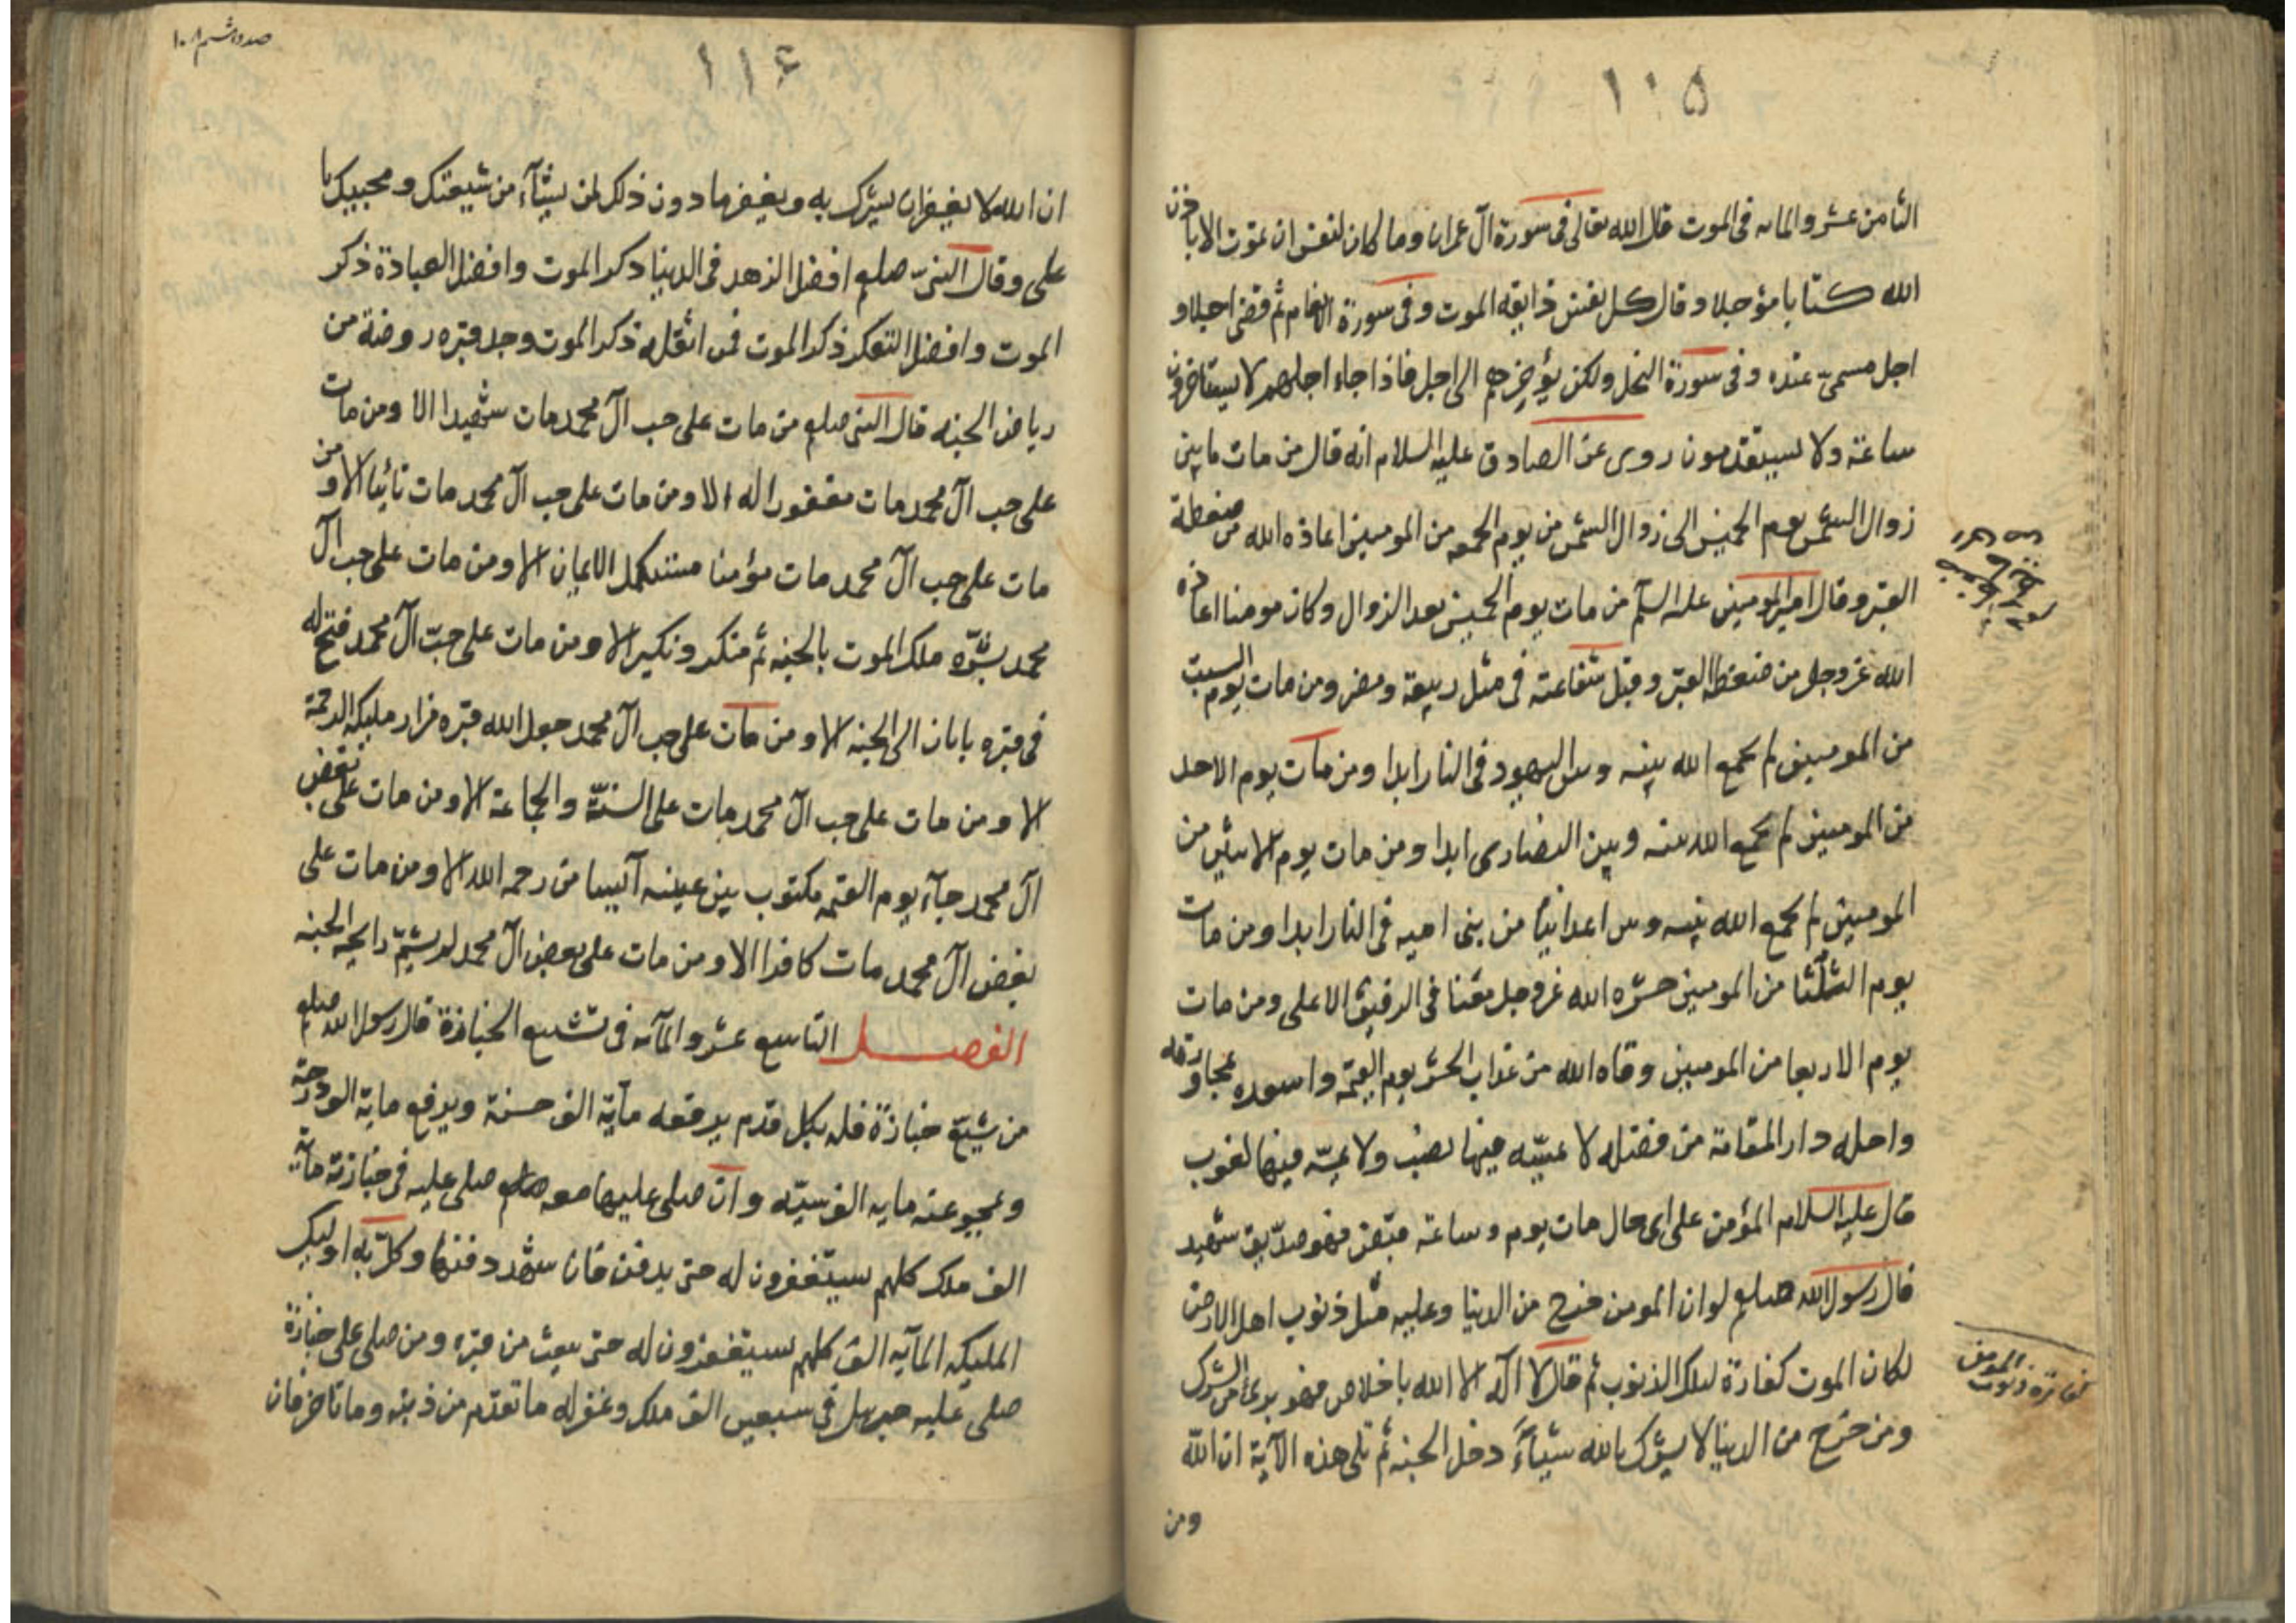 ١١٥
الثامن عشر والمايه فى الموت قال الله تعالى فى سورة آل عمران وما كان لنفس ان تموت الا باذن
الله كتابا مؤجلا وقال كل نفس ذايقه الموت وفى سورة الانعام ثم قضى اجلا و
اجل مسمىّ عنده وفى سورة النحل ولكن يؤخرهم الى اجل فاذا جاء اجلهم لا يستاخرون
ساعة ولا يستقدمون روى عن الصادق عليه السلام انه قال من مات ما بين
زوال الشمس يوم الخميس الى زوال الشمس من يوم الجمعه من المومنين اعاذه الله من ضغطة
القبر وقال امير المومنين عليه السلم من مات يوم الخميس بعد الزوال وكان مومنا اعاذه
الله عز وجل من ضغطه القبر وقبل شفاعته فى مثل ربيعة ومضر ومن مات يوم السبت
من المومنين لم يجمع الله بينه وبين اليهود فى النار ابدا ومن مات يوم الاحد
من المومنين لم يجمع الله بينه وبين النصارى ابدا ومن مات يوم الاثنين من
المومنين لم يجمع الله بينه وبين اعدائنا من بنى اميه فى النار ابدا ومن مات
يوم الثلثا من المومنين حشره الله عز وجل معنا فى الرفيق الاعلى ومن مات
يوم الاربعا من المومنين وقاه الله من عذاب الحشر يوم القيمه واسعده بمجاورته
واحله دار المقامة من فضله لا يمسّه فيها نصب ولا يمسّه فيها لغوب
قال عليه السلام المؤمن على اى حال مات يوم وساعة قبض فهو صدّيق شهيد
قال رسول الله صلعم لو ان المومن خرج من الدنيا وعليه مثل ذنوب اهل الارض
لكان الموت كفارة لتلك الذنوب ثم قال لا اله الا الله باخلاص فهو برئ من الشرك
ومن خرج من الدنيا لا يشرك بالله شيئاً دخل الجنه ثم تلى هذه الآية ان اللّه
ومن
١١٤
ان الله لا يغفر ان يشرك به ويغفر ما دون ذلك لمن يشآء من شيعتك ومحبيك يا
على وقال النبىّ صلعم افضل الزهد فى الدنيا ذكر الموت وافضل العبادة ذكر
الموت وافضل التفكر ذكر الموت فمن اثقله ذكر الموت وجد قبره روضة من
رياض الجنه قال النبى صلعم من مات على حب آل محمد مات شهيدا الا ومن مات
على حب آل محمد مات مغفورا له الا ومن مات على حب آل محمد مات تائبا الا ومن
مات على حب آل محمد مات مؤمنا مستكمل الايمان الا ومن مات على حب آل
محمد بشّره ملك الموت بالجنه ثم منكر ونكير الا ومن مات على حبّ آل محمد فتح له
فى قبره بابان الى الجنه الا ومن مات على حب آل محمد جعل الله قبره مزار مليكه الرحمة
الا ومن مات على حب آل محمد مات على السنّة والجماعة الا ومن مات على بغض
آل محمد جآء يوم القيمه مكتوب بين عينيه آئسا من رحمه الله الا ومن مات على
بغض آل محمد مات كافرا الا ومن مات على بغض آل محمد لم يشمّ رايحه الجنه
الفصل التاسع عشر والمآيه فى تشييع الجنازة قال رسول الله صلعم
من شيّع جنازة فله بكل قدم يرفعه مآية الف حسنة ويرفع ماية الف درجة
ويمحو عنه مايه الف سيّئه وان صلى عليها صلى عليه فى جنازته مآية
الف ملك كلهم يستغفرون له حتى يدفن فان شهد دفنها وكل به اوليك
المليكه المآيه الف كلهم يستغفرون له حتى يبعث من قبره ومن صلى على جنازة
صلى عليه جبريل فى سبعين الف ملك وغفر له ما تقدّم من ذنبه وما تاخر فان